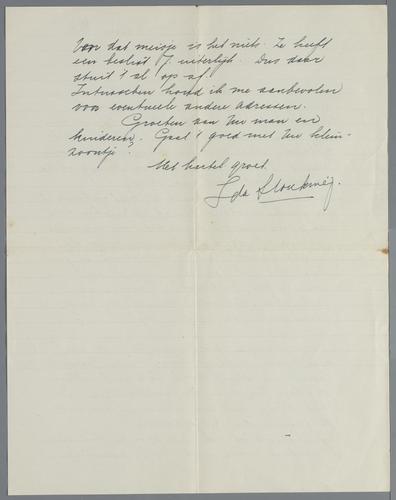 Van dat meisje is het niets. Ze heeft
een beslist J. uiterlijk. Dus daar
stuit 't al op af.
Intusschen houd ik me aanbevolen
voor eventueele andere adressen.
Groeten aan Uw man en
kinderen. Gaat 't goed met Uw klein-
zoontje?
Met hartel. groet.
Ida